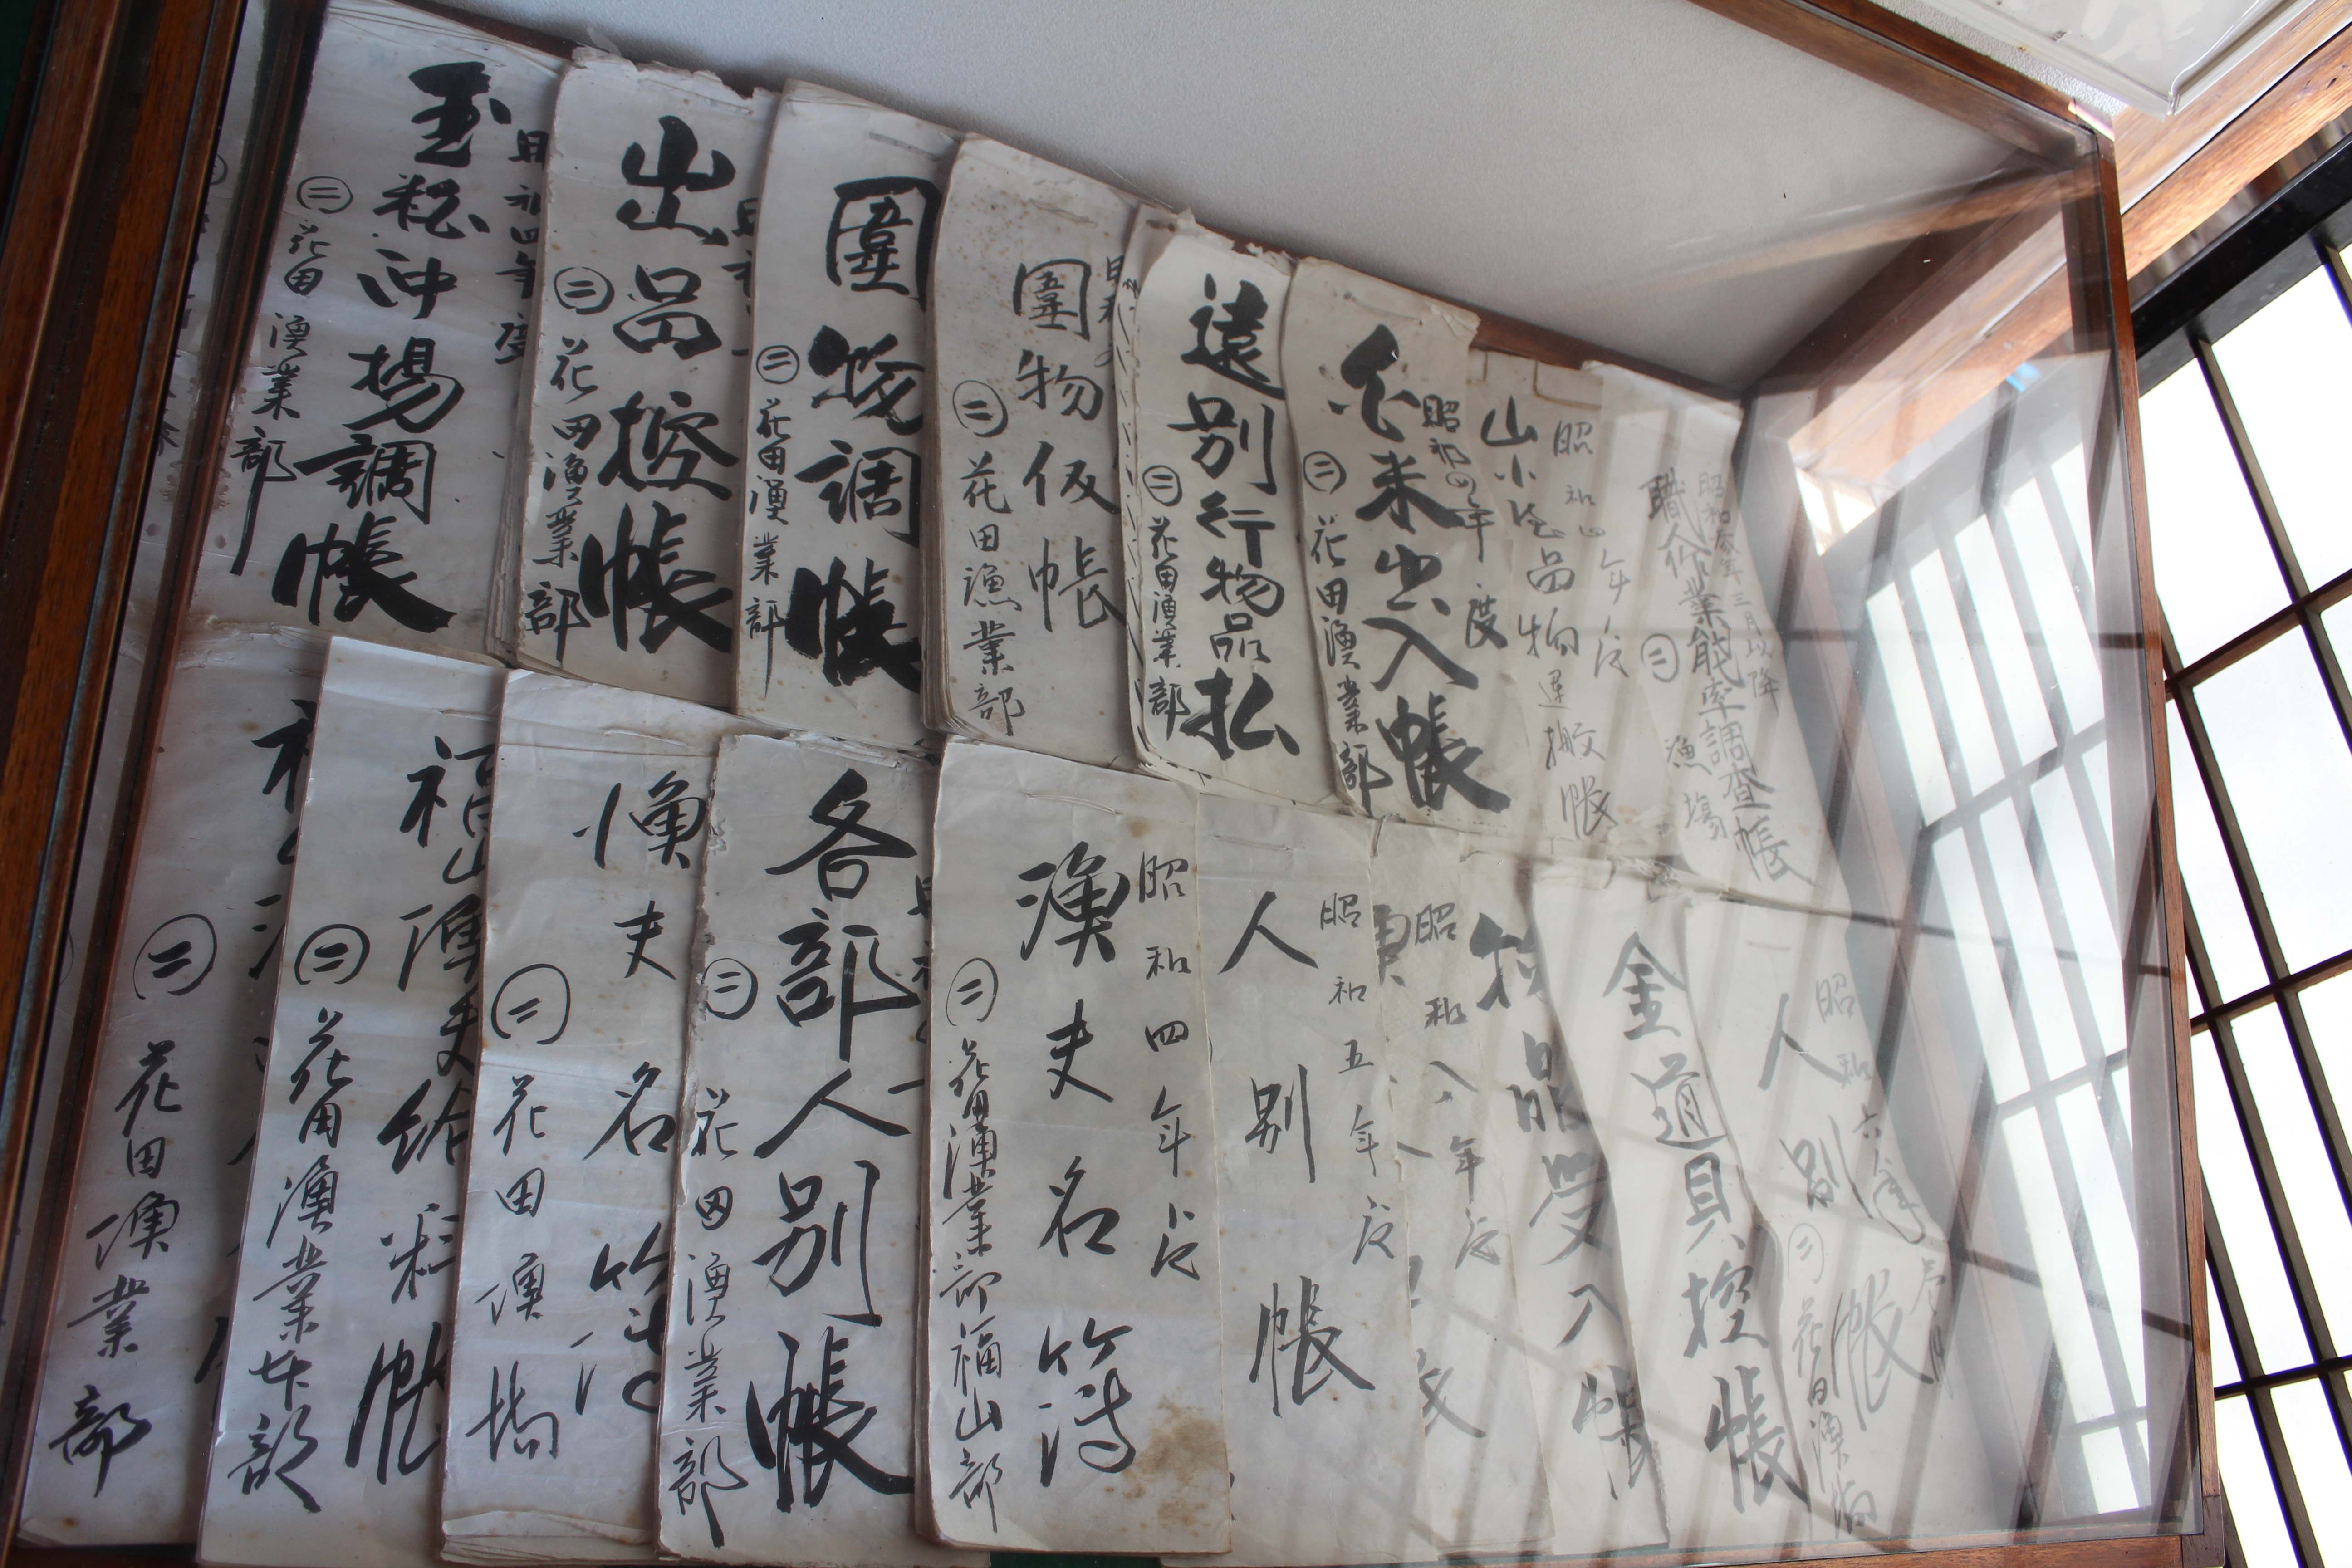 昭和四年度
玉粕沖揚調帳
㊁花田漁業部
出品控帳
㊁花田漁業部
圍物調帳
㊁花田漁業部
昭和
圍物仮帳
㊁花田漁業部
遠別行物品払
㊁花田漁業部
昭和四年度
米出入帳
㊁花田漁業部
昭和四年度
山小
品物運搬帳
年三月以降
職人作業能率調査帳
㊁漁場
㊁花田漁業部
福山漁夫給料帳
㊁花田漁業部
漁夫名簿
㊁花田漁場
各部人別帳
㊁花田漁業部
昭和四年度
漁夫名簿
㊁花田漁業部福山部
昭和五年度
人別帳
昭和八年度
物品受入帳
金道具控帳
昭和六年
人別帳
㊁花田漁場